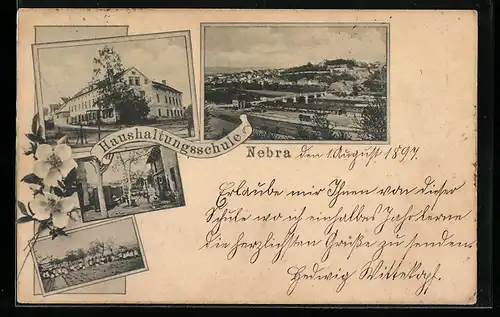 Haushaltungsschule
Nebra den 1. August 1897.
Erlaube mir Ihnen von dieser
Schule wo ich einhalbes Jahr lerne
die herzlichsten Grüße zu senden.
Hedwig Wittekopf.